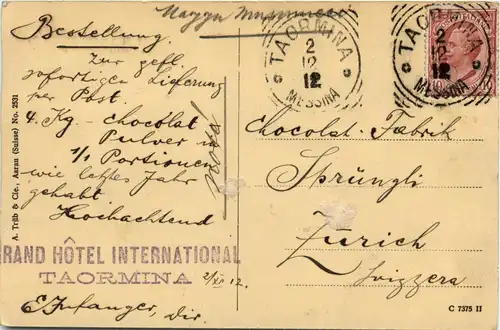 Bestellung.
Zur gefl.
sofortigen Lieferung
per Post.
4. Kg - chocolat
Pulver in
1/1 Portionen
wie letztes Jahr
gehabt
Hochachtend
GRAND HÔTEL INTERNATIONAL
TAORMINA
2/XII 12.
E. Infanger, Dir.
A. Trüb & Cie., Aarau (Suisse) No. 2531
TAORMINA
2
12
12
MESSINA
TAORMINA
2
12
12
MESSINA
Chocolat-Fabrik
Sprüngli
Zürich
Svizzera
C 7375 II